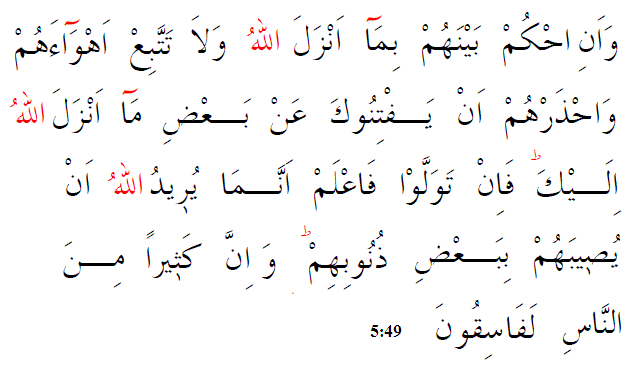 وَاَنِ احْكُمْ بَيْنَهُمْ بِمَٓا اَنْزَلَ اللهُ وَلاَ تَتَّبِعْ اَهْوَٓاءَهُمْ
وَاحْذَرْهُمْ اَنْ يَـــفْتِنُوكَ عَنْ بَـــعْضِ مَٓا اَنْزَلَ اللهُ
اِلَـــيْكَ ؕ فَاِنْ تَوَلَّوْا فَاعْلَمْ اَنَّـــمَا يُرٖيدُ اللهُ اَنْ
يُصٖيبَهُمْ بِبَـــعْضِ ذُنُوبِهِمْ ؕ وَ اِنَّ كَثٖيراً مِـــنَ
النَّاسِ لَفَاسِقُونَ 5:49